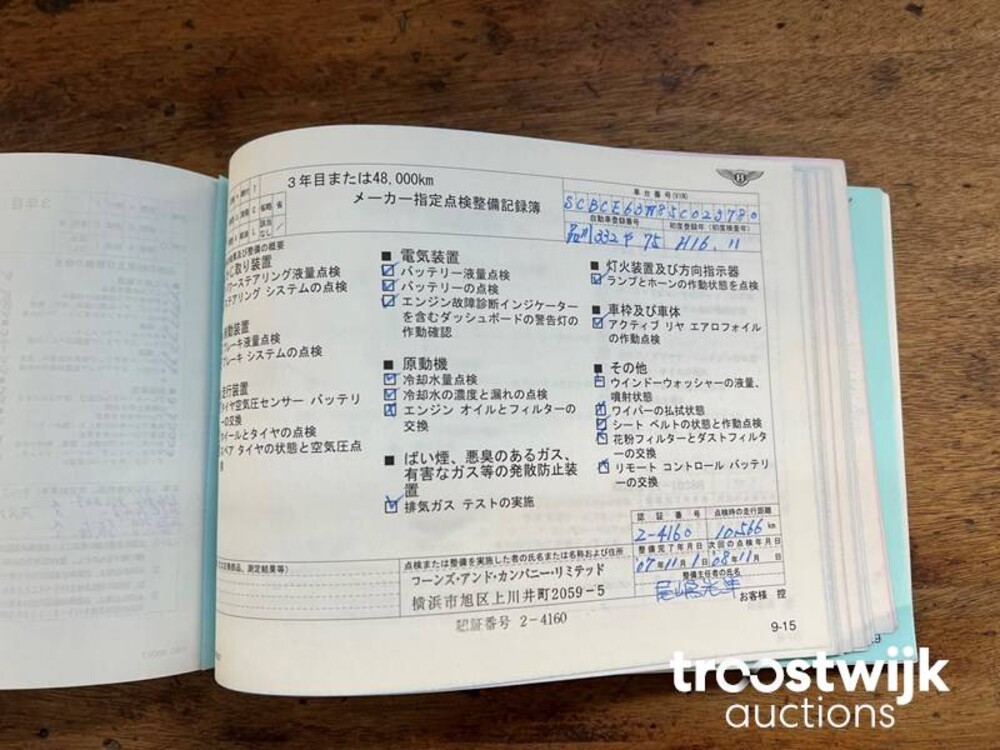 3年目または48,000km
メーカー指定点検整備記録簿
車台番号(VIN)
SCBCE63W85C023780
自動車登録番号
初度登録年(初度検査年)
332 75 H16. 11
点検結果及び整備の概要
かじ取り装置
パワーステアリング液量点検
ステアリング システムの点検
制動装置
ブレーキ液量点検
ブレーキ システムの点検
走行装置
タイヤ空気圧センサー バッテリーの交換
ホイールとタイヤの点検
スペア タイヤの状態と空気圧点
■ 電気装置
バッテリー液量点検
バッテリーの点検
エンジン故障診断インジケーター
を含むダッシュボードの警告灯の
作動確認
■ 原動機
冷却水量点検
冷却水の濃度と漏れの点検
エンジン オイルとフィルターの
交換
■ ばい煙、悪臭のあるガス、
有害なガス等の発散防止装
置
排気ガス テストの実施
■ 灯火装置及び方向指示器
ランプとホーンの作動状態を点検
■ 車枠及び車体
アクティブ リヤ エアロフォイル
の作動点検
■ その他
ウインドーウォッシャーの液量、
噴射状態
ワイパーの払拭状態
シート ベルトの状態と作動点検
花粉フィルターとダストフィルタ
ーの交換
リモート コントロール バッテリ
ーの交換
認証番号
点検時の走行距離
2-4160
10,566 km
整備完了年月日
次回の点検年月日
'07年11月1日
'08年11月 日
整備主任者の氏名
お客様 控
交換部品、測定結果等)
点検または整備を実施した者の氏名または名称および住所
コーンズ・アンド・カンパニー・リミテッド
横浜市旭区上川井町2059-5
認証番号 2-4160
9-15
troostwijk
auctions